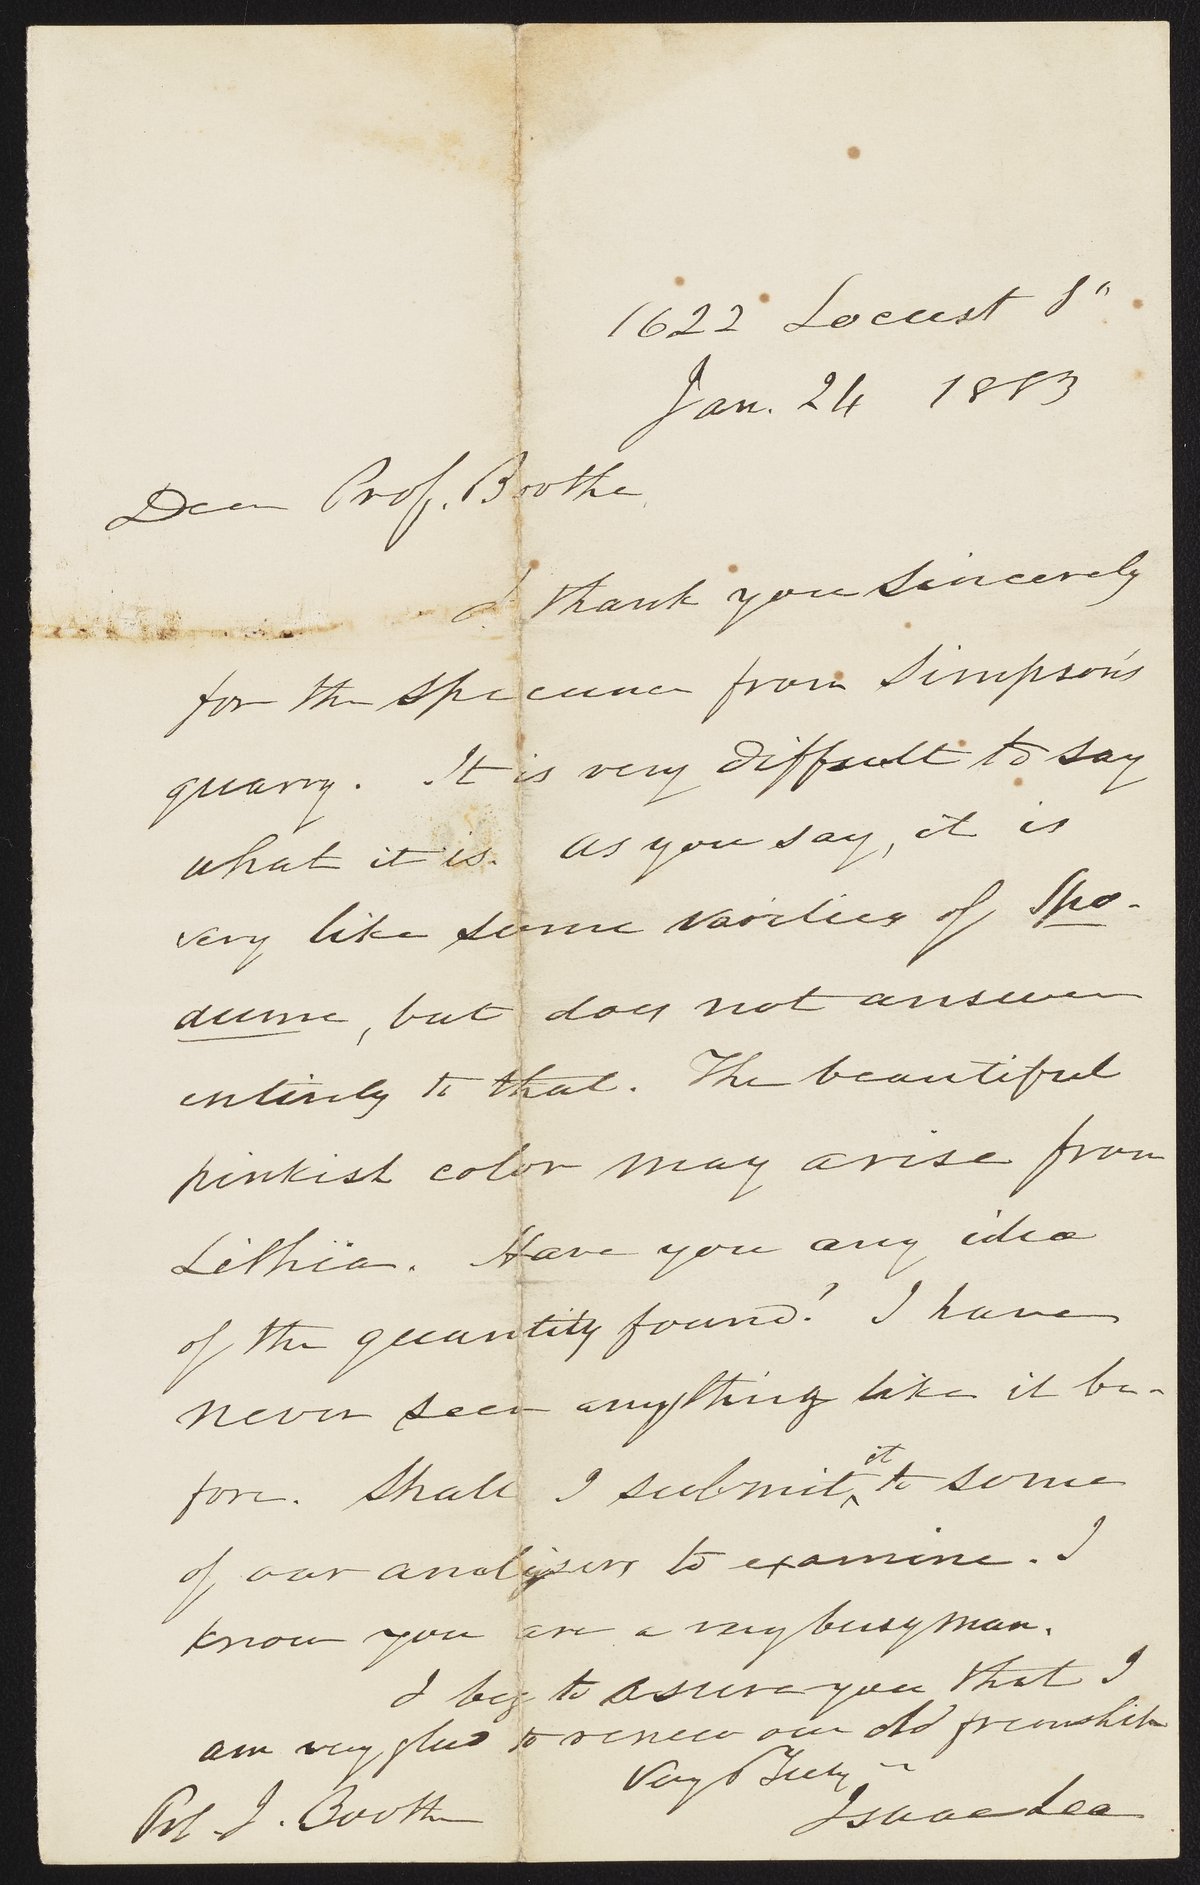 1622 Locust St
Jan. 24 1883
Dear Prof. Boothe
I thank you sincerely
for the specimen from Simpson's
quarry. It is very difficult to say
what it is. As you say, it is
very like some varieties of Spo-
dume, but does not answer
entirely to that. The beautiful
pinkish color may arise from
Lithia. Have you any idea
of the quantity found? I have
never seen anything like it be-
fore. Shall I submit it to some
of our analysers to examine. I
know you are a very busy man.
I beg to assure you that I
am very glad to renew our old freindship
Very Truly
Isaac Lea
Prof. J. Booth